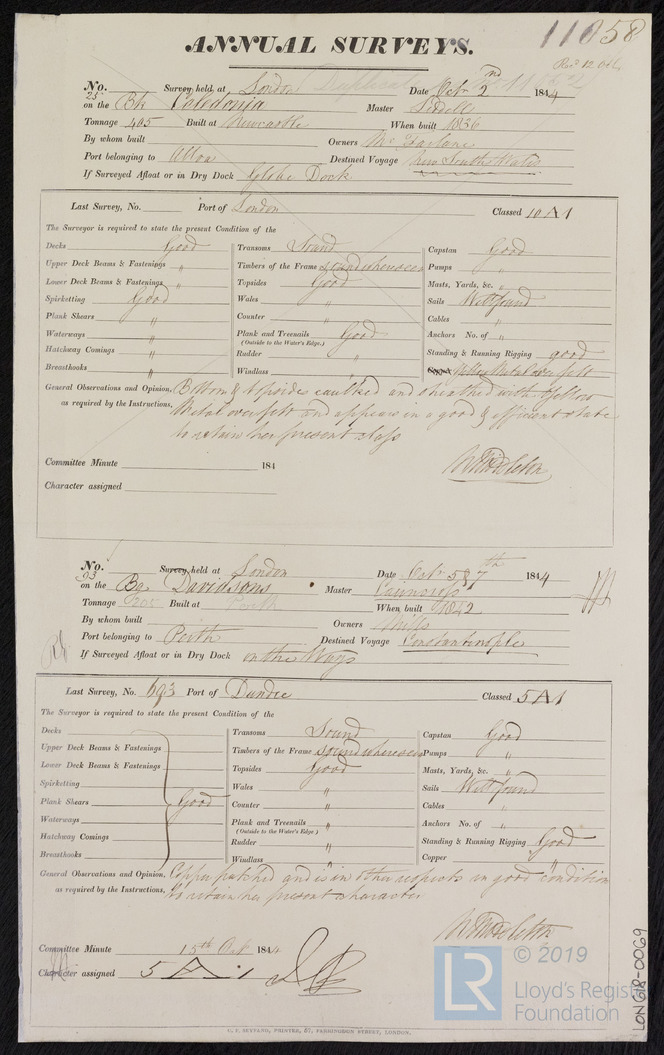 11058
ANNUAL SURVEYS.
Rec 12 Oct
No. 25 Survey held at London Date Octr 2nd 1844
on the Bk Caledonia Master Liddell
Tonnage 405 Built at Newcastle When built 1836
By whom built Owners McFarlane
Port belonging to Alloa Destined Voyage New South Wales
If Surveyed Afloat or in Dry Dock Globe Dock
Last Survey, No. Port of London Classed 10 A 1
The Surveyor is required to state the present Condition of the
Decks Good
Upper Deck Beams & Fastenings "
Lower Deck Beams & Fastenings "
Spirketting Good
Plank Shears "
Waterways "
Hatchway Comings "
Breasthooks "
Transoms Sound
Timbers of the Frame sound where seen
Topsides Good
Wales "
Counter "
Plank and Treenails Good
(Outside to the Water's Edge.)
Rudder "
Windlass "
Capstan Good
Pumps "
Masts, Yards, &c. "
Sails Well found
Cables "
Anchors No. of "
Standing & Running Rigging good
Copper Yellow Metal over felt
General Observations and Opinion, Bottom & topsides caulked and sheathed with Yellow
as required by the Instructions. Metal over felt and appears in a good & efficient state
to retain her present class
W Middleton
Committee Minute 184
Character assigned
No. 03 Survey held at London Date Octr 5 & 7th 1844
on the Bg Davidsons Master
Tonnage Built at Perth When built 1842
By whom built Owners Mills
Port belonging to Perth Destined Voyage Constantinople
If Surveyed Afloat or in Dry Dock on the Ways
Last Survey, No. 693 Port of Dundee Classed 5 A 1
The Surveyor is required to state the present Condition of the
Decks
Upper Deck Beams & Fastenings
Lower Deck Beams & Fastenings
Spirketting
Plank Shears Good
Waterways
Hatchway Comings
Breasthooks
Transoms Sound
Timbers of the Frame sound where seen
Topsides Good
Wales "
Counter "
Plank and Treenails "
(Outside to the Water's Edge.)
Rudder "
Windlass "
Capstan Good
Pumps "
Masts, Yards, &c. "
Sails Well found
Cables "
Anchors No. of "
Standing & Running Rigging Good
Copper "
General Observations and Opinion, Copper patched and is in other respects in good condition
as required by the Instructions. to retain her present character
W Middleton
Committee Minute 15th Oct 1844
Character assigned 5 A 1
C. F. SEYFANG, PRINTER, 57, FARRINGDON STREET, LONDON.
LON618-0069
LR
© 2019
Lloyd's Register
Foundation